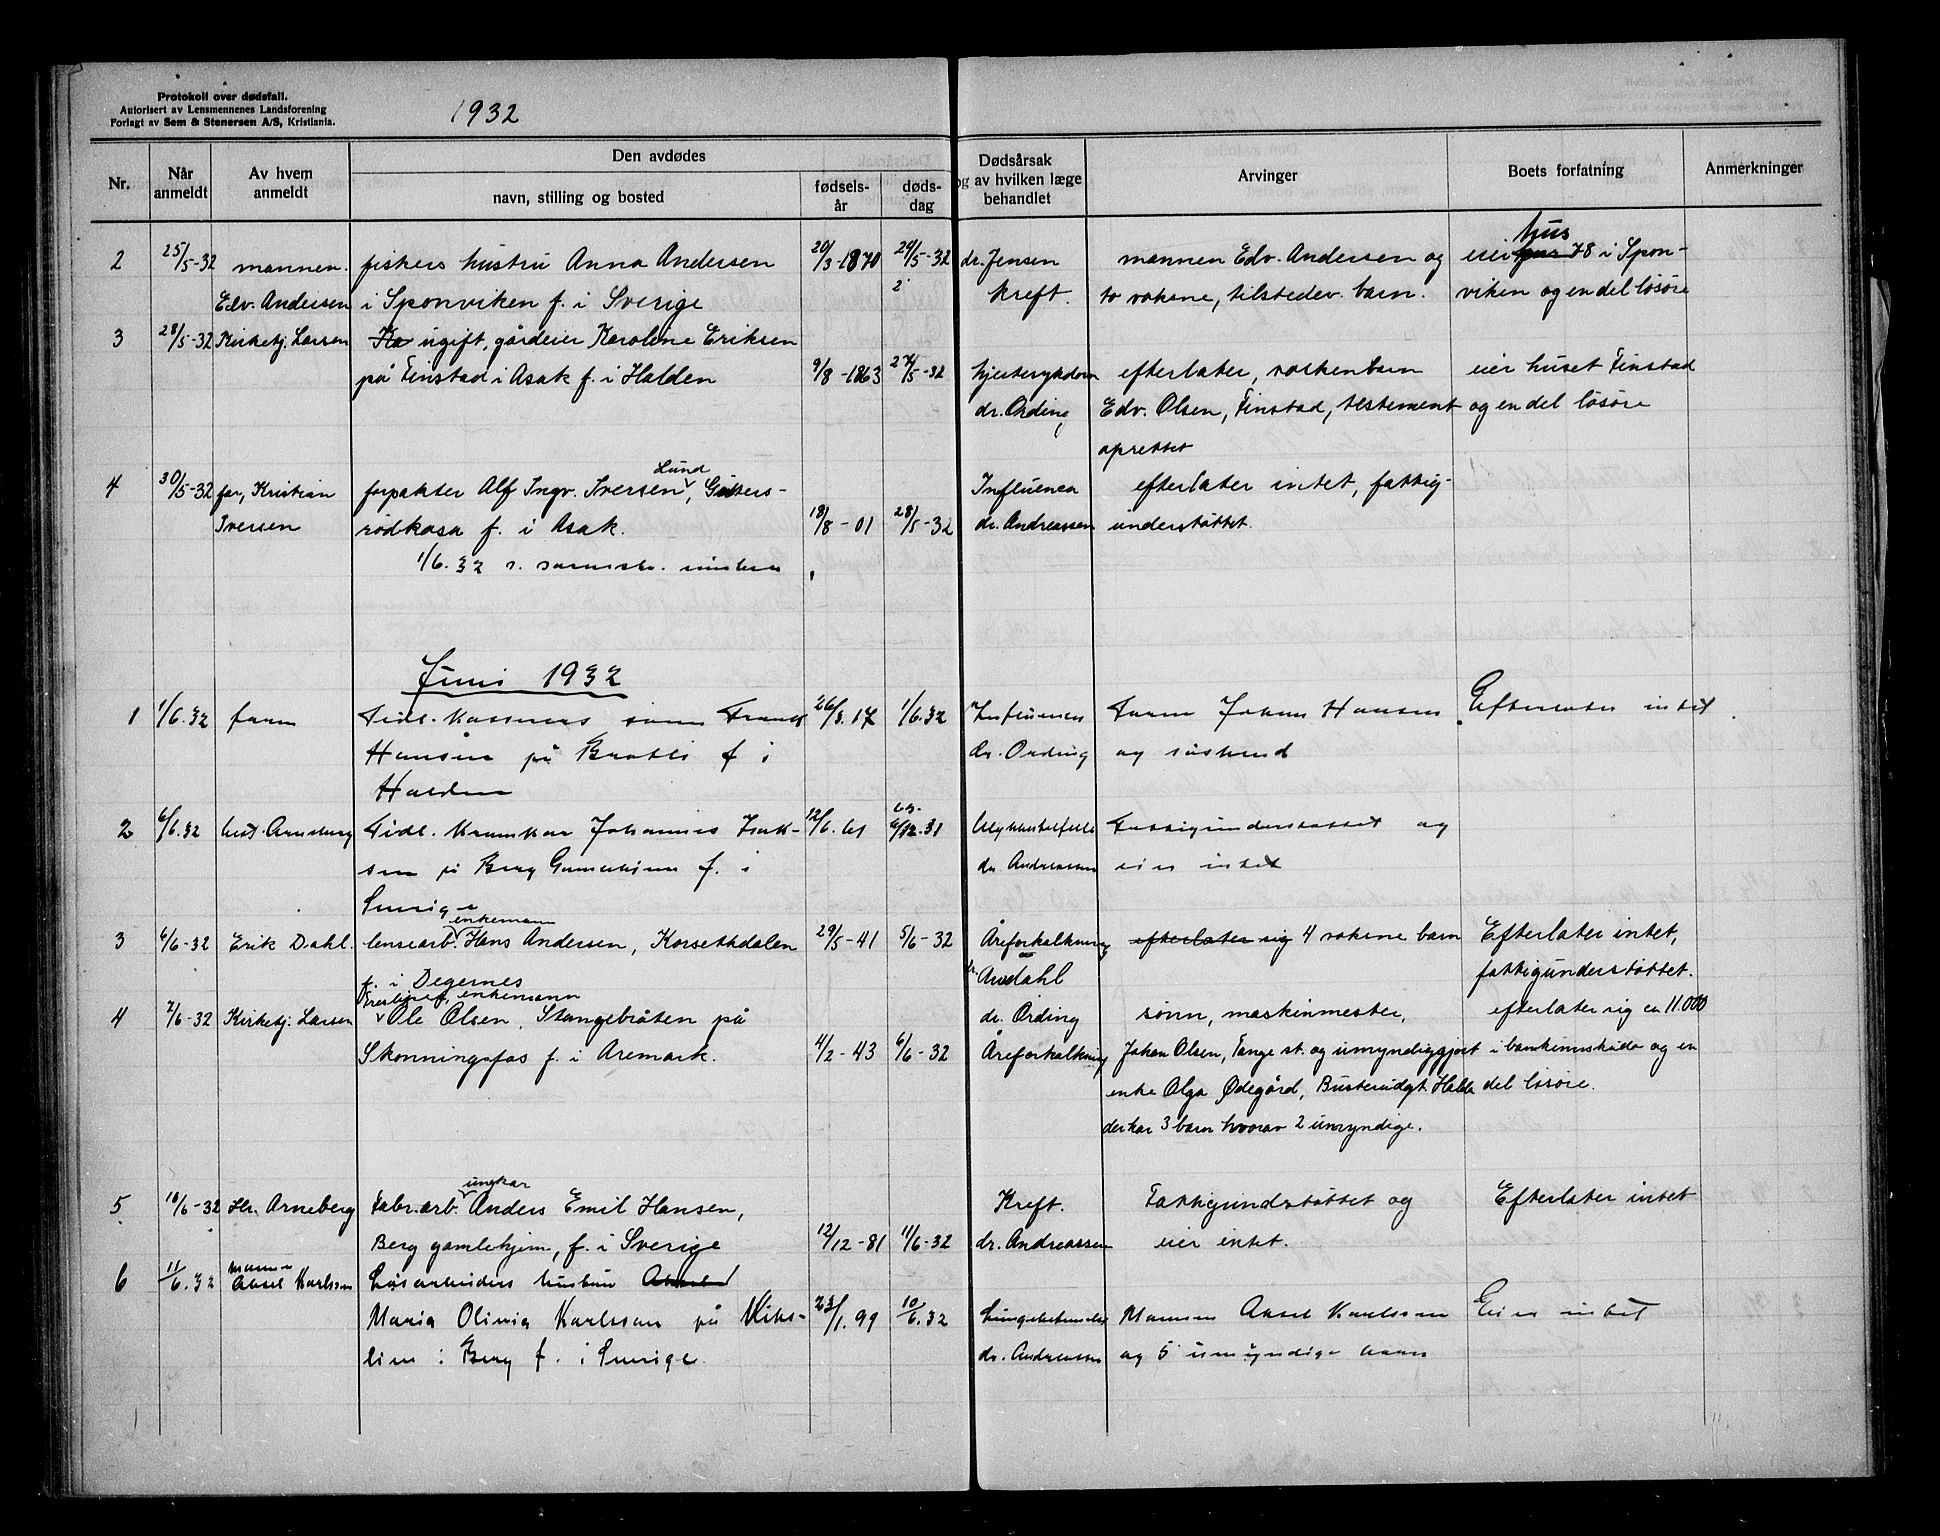 Protokoll over dødsfall.
Autorisert av Lensmennenes Landsforening
Forlagt av Sem & Stenersen A/S, Kristiania.
1932
Nr.
Når anmeldt
Av hvem anmeldt
Den avdødes
navn, stilling og bosted
fødsels-år
døds-dag
Dødsårsak og av hvilken læge behandlet
Arvinger
Boets forfatning
Anmerkninger
2 25/5-32 mannen fiskers hustru Anna Andersen 20/3-1870 24/5-32 dr. Jensen mannen Edv. Andersen og eier hus 78 i Spon-
Edv. Andersen i Sponviken f. i Sverige kreft. to voksne, tilstedev. barn. viken og en del løsøre
3 28/5-32 Kirketj. Larsen Ka ugift, gårdeier Karoline Eriksen
på Finstad i Asak f. i Halden 9/8-1863 27/5-32 hjertesykdom efterlater, søskenbarn eier huset Finstad
dr. Ording Edv. Olsen, Finstad, testement og en del løsøre
oprettet
4 30/5-32 far, Kristian forpakter Alf Ingv. Iversen Lund, Influenca efterlater intet, fattig-
Iversen rødkasa f. i Asak. 18/8-01 28/5-32 dr. Andreassen understøttet.
1/6.32
Juni 1932
1 1/6.32 faren Fidl. sønn Frank 26/3.17 1/6.32 Influenca Faren Johan Hansen Efterlater intet
Hansen på f i dr. Ording og søskend
Halden
2 6/6.32 best. Arneberg Fidl. Johannes Isak- 12/6.61 31 Ulykkestilfelle Fattigunderstøttet og
sen på Berg Gamlehjem f. i dr. Andreassen eier intet
Sverige
3 6/6-32 Erik Dahl. lensearb. enkemann Hans Andersen, Korsethdalen 29/5-41 5/6-32 Åreforkalkning efterlater sig 4 voksne barn Efterlater intet,
f. i Degernes dr. Arvdahl fattigunderstøttet.
4 7/6-32 Kirketj. Larsen enkemann Ole Olsen, Stangebråten på dr. Ording sønn, maskinmester, efterlater sig ca 11.000
Skonningsfos f. i Aremark. 4/2-43 6/6-32 Åreforkalkning Johan Olsen, Tange st. og umyndiggjort i bankinnskudd og en
enke Olga Ødegård, Busterudgt. Halden del løsøre.
der har 3 barn hvorav 2 umyndige.
5 10/6-32 Hr. Arneberg Fabr.arb. ungkar Anders Emil Hansen, Kreft. Fattigundstøttet og Efterlater intet
Berg gamlehjem, f. i Sverige 12/12-81 11/6-32 dr. Andreassen eier intet.
6 11/6.32 mannen Aksel Karlsson Løsarbeiders hustru
Maria Olivia Karlsson på 23/1.99 10/6.32 Lungebetennelse Mannen Aksel Karlsson Eier intet
lien i Berg f. i Sverige. dr. Andreassen og 5 umyndige barn